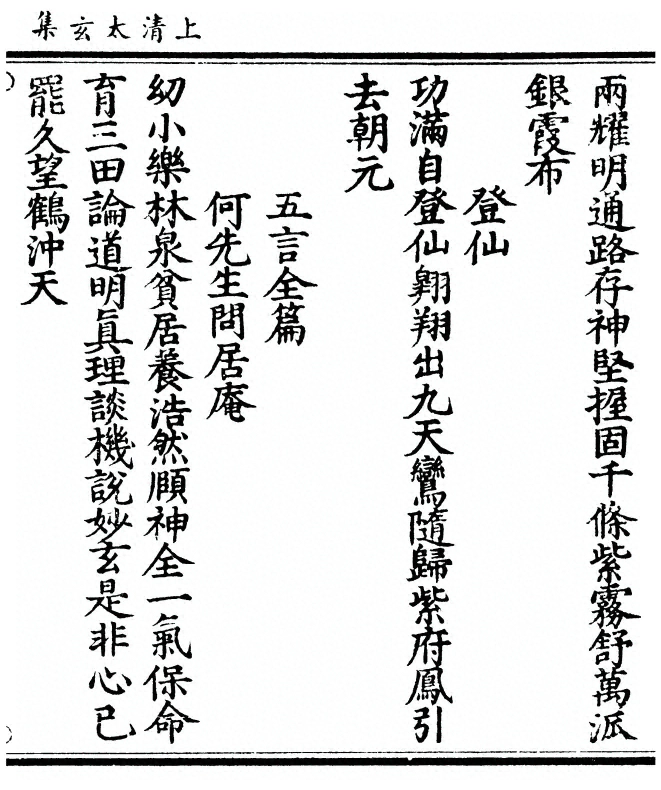 上清太玄集
兩耀明通路存神堅握固千條紫霧舒萬派
銀霞布
登仙
功滿自登仙翱翔出九天鸞隨歸紫府鳳引
去朝元
五言全篇
何先生問居庵
幼小樂林泉貧居養浩然頤神全一氣保命
育三田論道明眞理談機說妙玄是非心已
罷久望鶴沖天